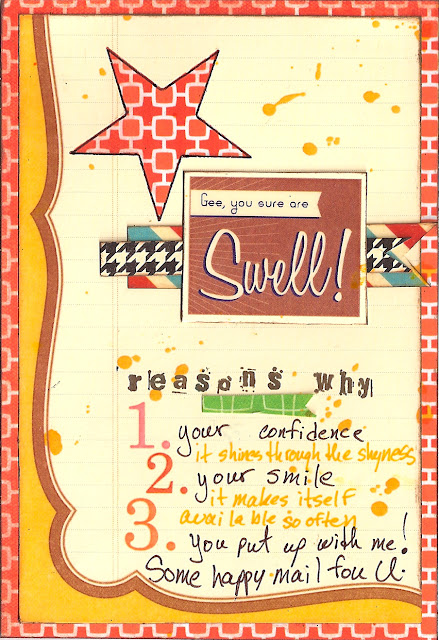 Gee, you sure are
Swell!
reasons why
1. your confidence
it shines through the shyness
2. your smile
it makes itself
availeble so often
3. you put up with me!
Some happy mail fou U.